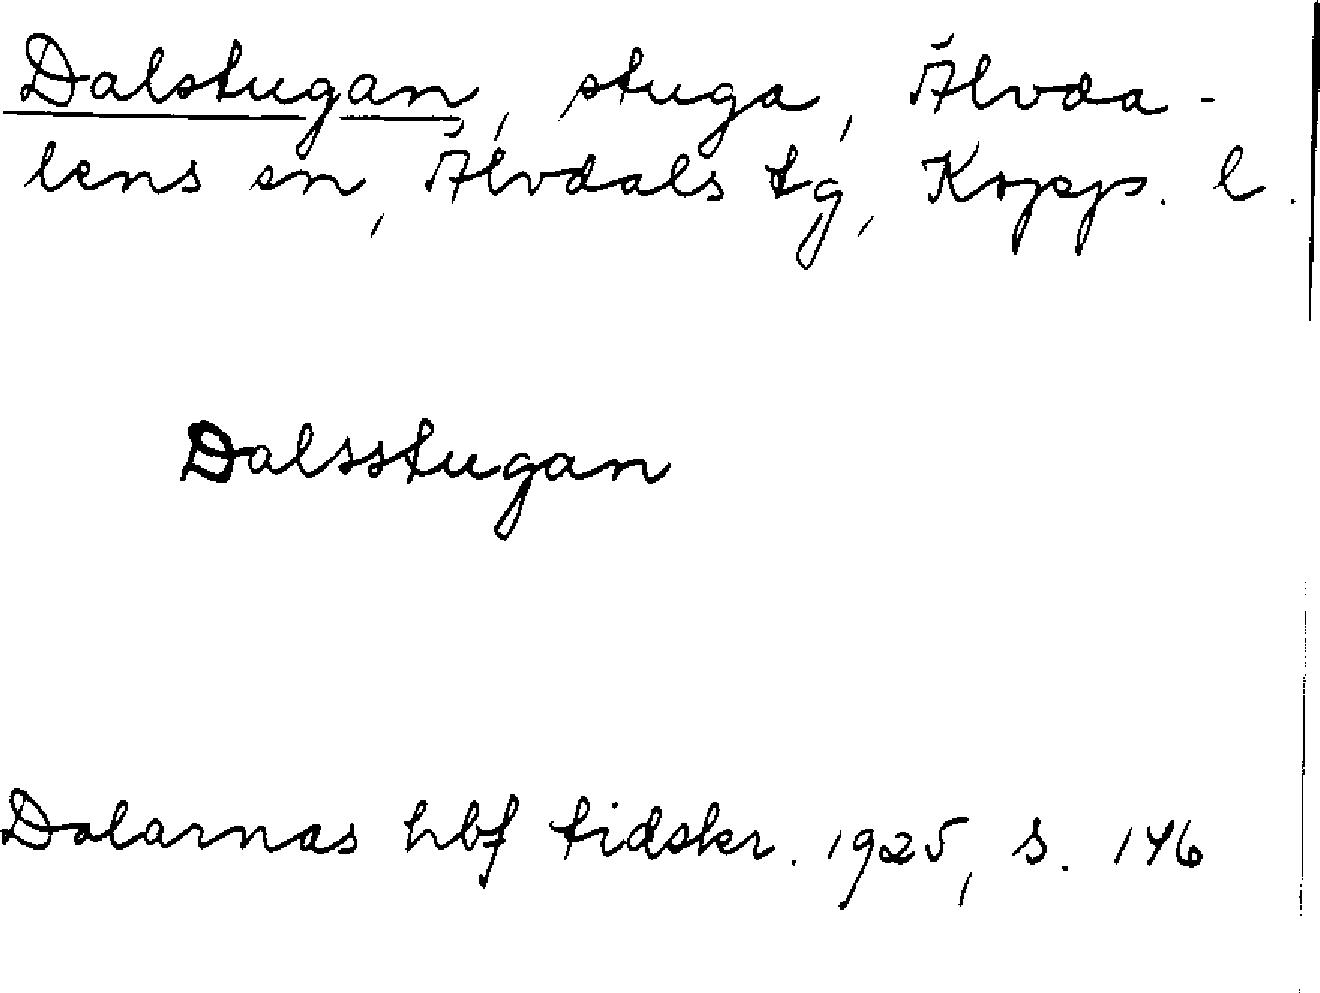 Dalstugan, stuga, Älvda-
lens sn, Älvdals tg, Kopp. l.
Dalsstugan
Dalarnas hbf tidskr. 1925, s. 146